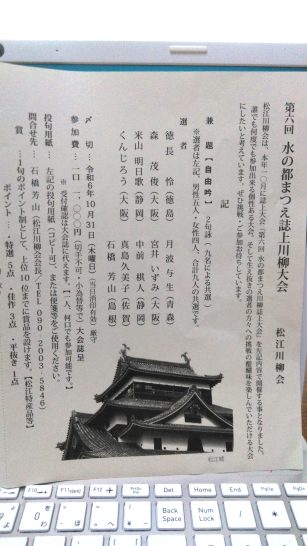 第六回 水の都まつえ誌上川柳大会
松江川柳会
松江川柳会は、本年一〇月に誌上大会「第六回 水の都まつえ誌上川柳大会」を左記内容で開催する事となりました。
誰でも何度でも参加出来る個性ある大会、そして生え抜きの選者の方々への挑戦の醍醐味を楽しんでいただける大会
にしたいと考えています。ぜひ挑戦・ご参加お待ちしています。
記
兼 題 【自由吟】 2句詠(九名による共選)
※選者は左記、男性五人・女性四人、合計九人の共選です
選 者
徳長 怜(徳島) 月波与生(青森)
森 茂俊(大阪) 宮井いずみ(大阪)
米山明日歌(静岡) 中前棋人(静岡)
くんじろう(大阪) 真島久美子(佐賀)
石橋芳山(島根)
〆 切 … 令和6年10月31日(木曜日)【当日消印有効】厳守
参加費 … 一口 一、〇〇〇円(切手不可・小為替等で)大会誌呈
※ 受付確認は大会誌に代えます【一人、何口でも参加可能です。】
投句用紙 … 左記の投句用紙(コピー可)または便箋等をご使用ください。
問合せ先 … 石橋芳山(松江川柳会会長/TEL 090 2003-5846)
賞 … 1句のポイント制として、上位10位までに賞品を設けます。【松江特産品等】
ポイント … ・特選5点 ・佳作3点 ・平抜き1点
松江城
F10
F11
F12
Delete
Home
End
Back Space
Num Lock
/
*